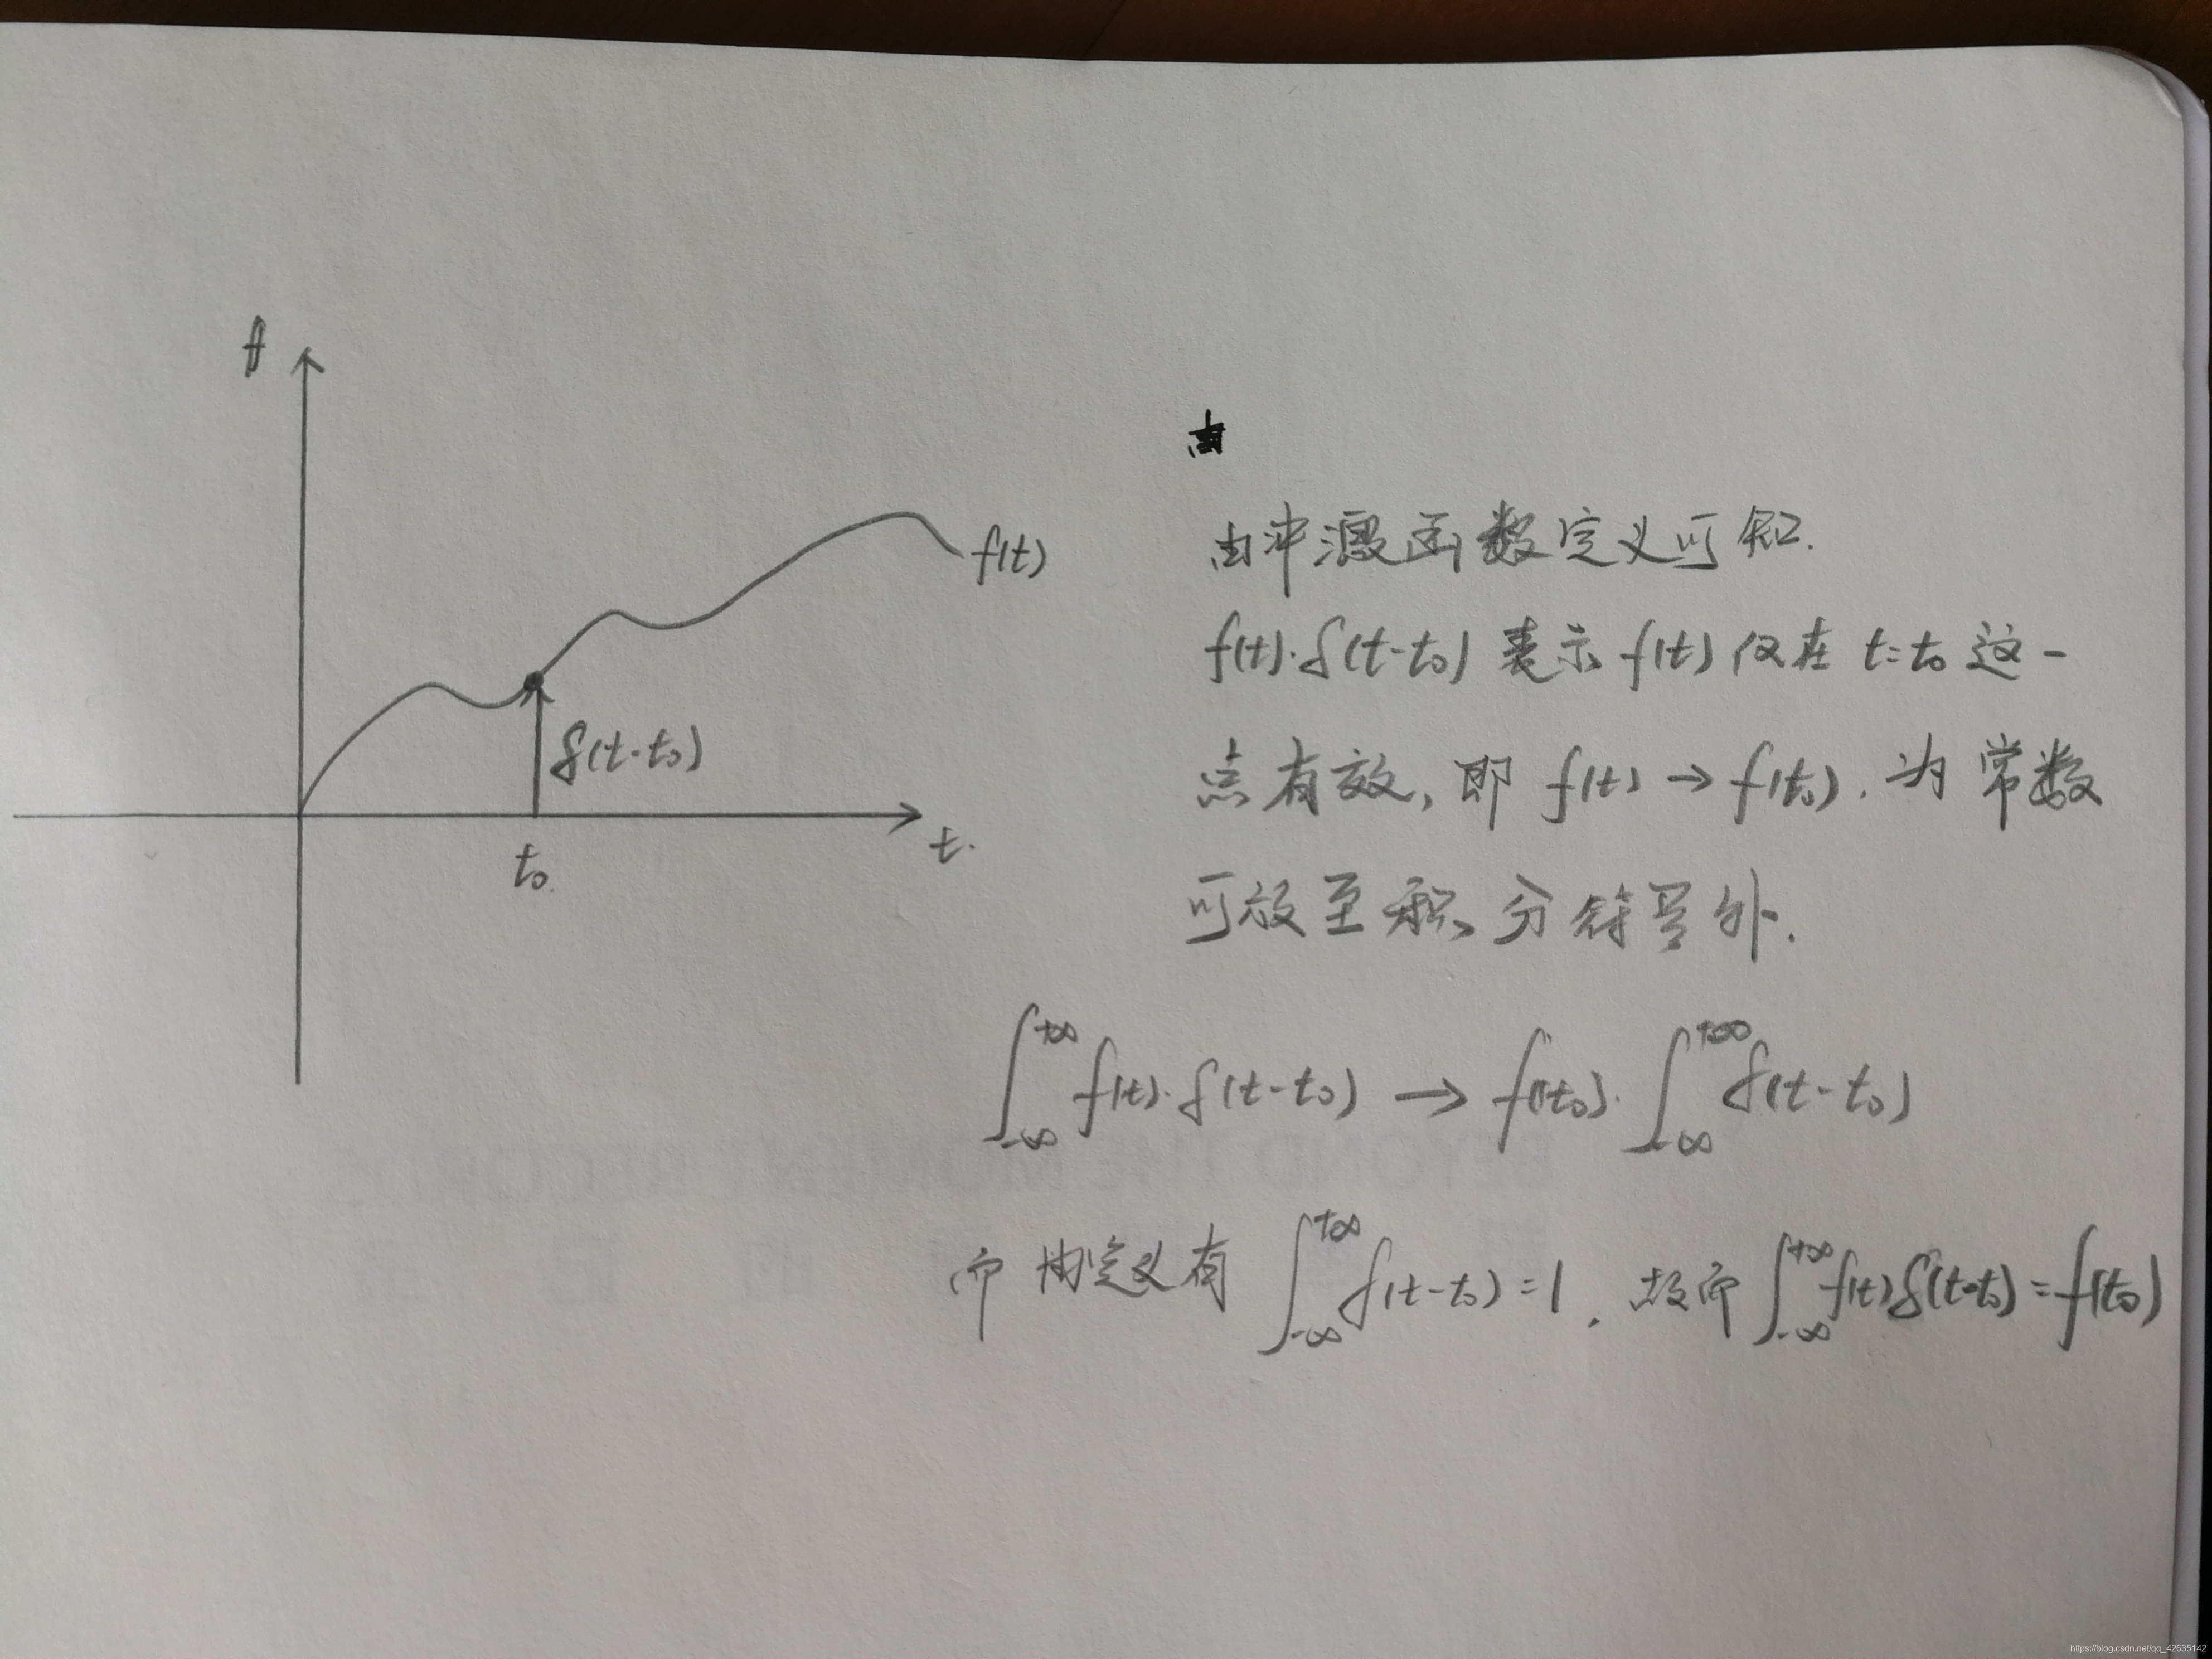 f
f(t)
δ(t-t₀)
t.
t₀.
由冲激函数定义可知.
f(t)·δ(t-t₀) 表示 f(t) 仅在 t=t₀ 这一
点有效, 即 f(t) → f(t₀). 为 常数
可放至积分符号外.
∫_{-∞}^{+∞} f(t)·δ(t-t₀) → f(t₀)·∫_{-∞}^{+∞} δ(t-t₀)
而 由定义有 ∫_{-∞}^{+∞} δ(t-t₀)=1. 故而 ∫_{-∞}^{+∞} f(t)δ(t-t₀)=f(t₀)
https://blog.csdn.net/qq_42635142